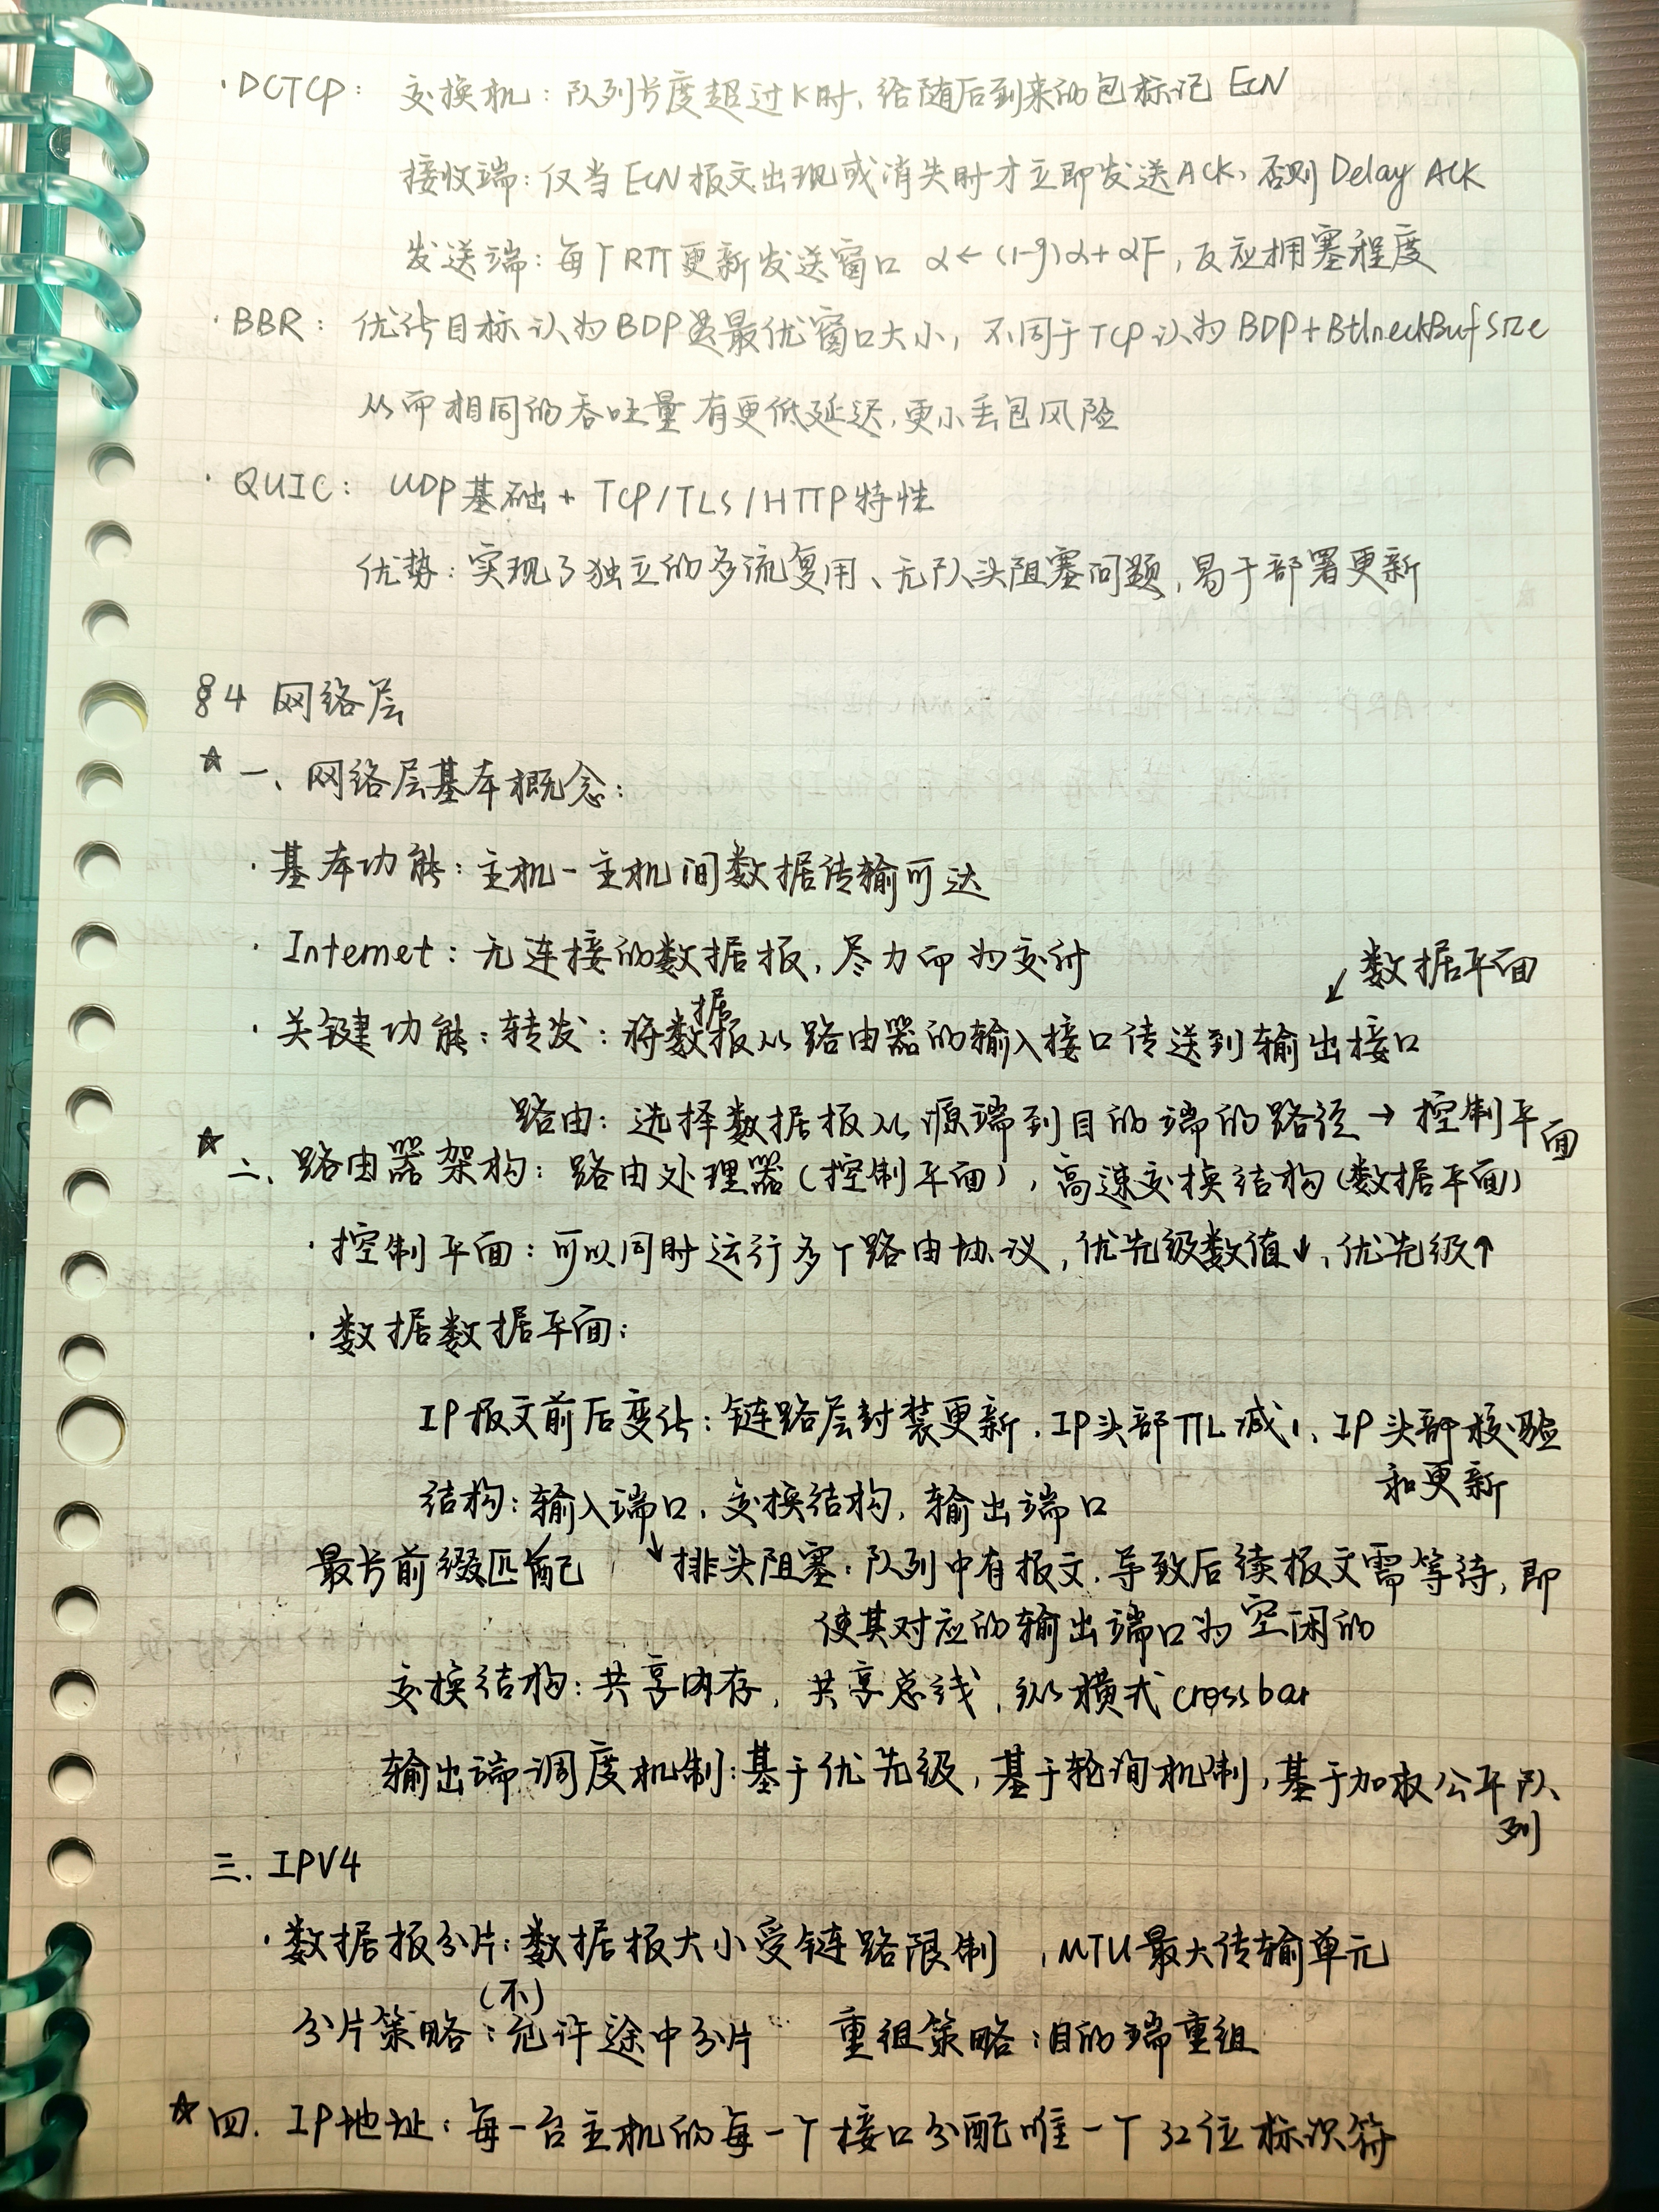 ·DCTCP: 交换机:队列长度超过K时,给随后到来的包标记 ECN
接收端:仅当ECN报文出现或消失时才立即发送ACK,否则Delay ACK
发送端:每个RTT更新发送窗口 α←(1-g)α+αF,反应拥塞程度
·BBR: 优化目标认为BDP是最优窗口大小,不同于TCP认为BDP+BtlneckBufSize
从而相同的吞吐量有更低延迟,更小丢包风险
·QUIC: UDP基础+TCP/TLS/HTTP特性
优势:实现了独立的多流复用、无队头阻塞问题,易于部署更新
§4 网络层
☆一、网络层基本概念:
·基本功能:主机-主机间数据传输可达
·Internet:无连接的数据报,尽力而为交付
↙数据平面
·关键功能:转发:将数据报从路由器的输入接口传送到输出接口
路由:选择数据报从源端到目的端的路径→控制平面
☆二、路由器架构:路由处理器(控制平面),高速交换结构(数据平面)
·控制平面:可以同时运行多个路由协议,优先级数值↓,优先级↑
·数据数据平面:
IP报文前后变化:链路层封装更新、IP头部TTL减1、IP头部校验
和更新
结构:输入端口,交换结构,输出端口
最长前缀匹配 ↘排头阻塞:队列中有报文,导致后续报文需等待,即
使其对应的输出端口为空闲的
交换结构:共享内存,共享总线,纵横式crossbar
输出端调度机制:基于优先级,基于轮询机制,基于加权公平队
列
三.IPV4
·数据报分片:数据报大小受链路限制 ,MTU最大传输单元
分片策略:(不)允许途中分片 重组策略:目的端重组
☆四.IP地址:每一台主机的每一个接口分配唯一个32位标识符